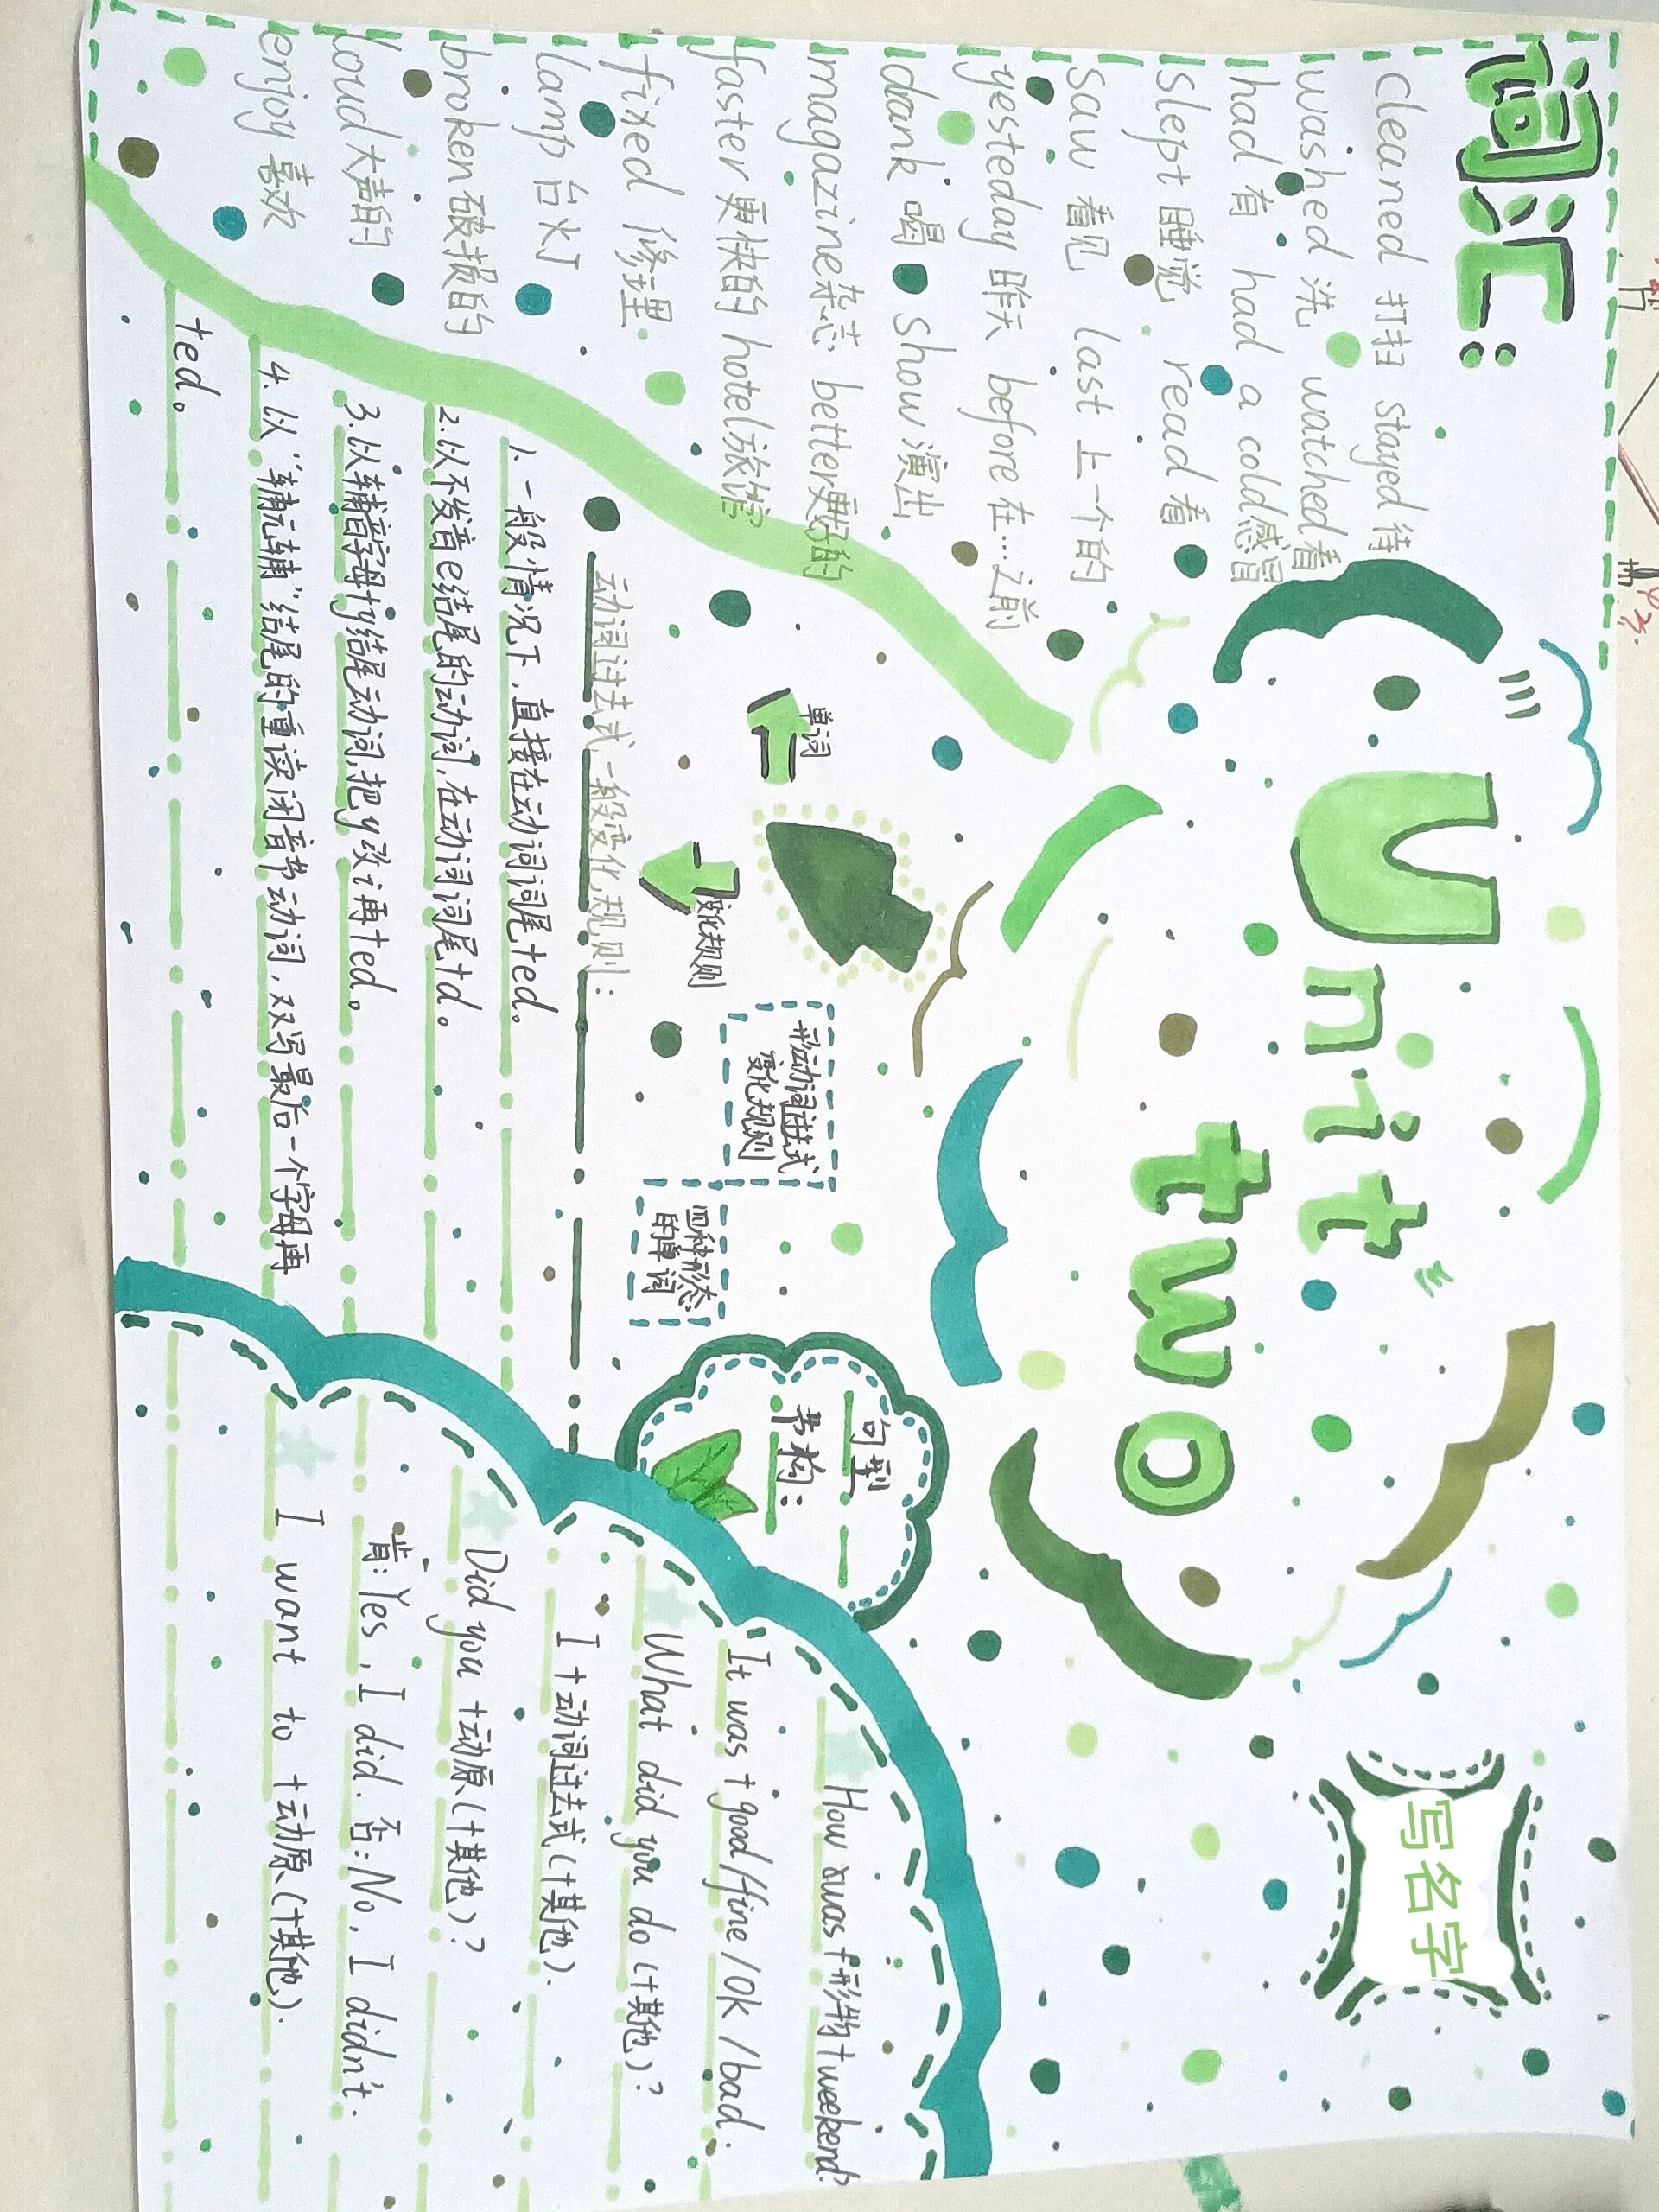 词汇:
cleaned 打扫 stayed 待
washed 洗 watched 看
had 有 had a cold 感冒
slept 睡觉 read 看
saw 看见 last 上一个的
yesteday 昨天 before 在…之前
dank 喝 show 演出
magazine 杂志 better 更好的
faster 更快的 hotel 旅馆
fixed 修理
lamp 台灯
broken 破损的
loud 大声的
enjoy 喜欢
Unit
two
写名字
单词
变化规则
形动词过去式
变化规则
四种形态
的单词
动词过去式一般变化规则:
1. 一般情况下,直接在动词词尾+ed。
2. 以不发音e结尾的动词,在动词词尾+d。
3. 以辅音字母+y结尾动词,把y改i再+ed。
4. 以“辅元辅”结尾的重读闭音节动词,双写最后一个字母再
+ed。
句型
书构:
How was +形物+weekend?
It was + good/fine/ok/bad.
What did you do (+其他)?
I +动词过去式(+其他).
Did you +动原(+其他)?
肯: Yes, I did. 否: No, I didn't.
I want to +动原(+其他).